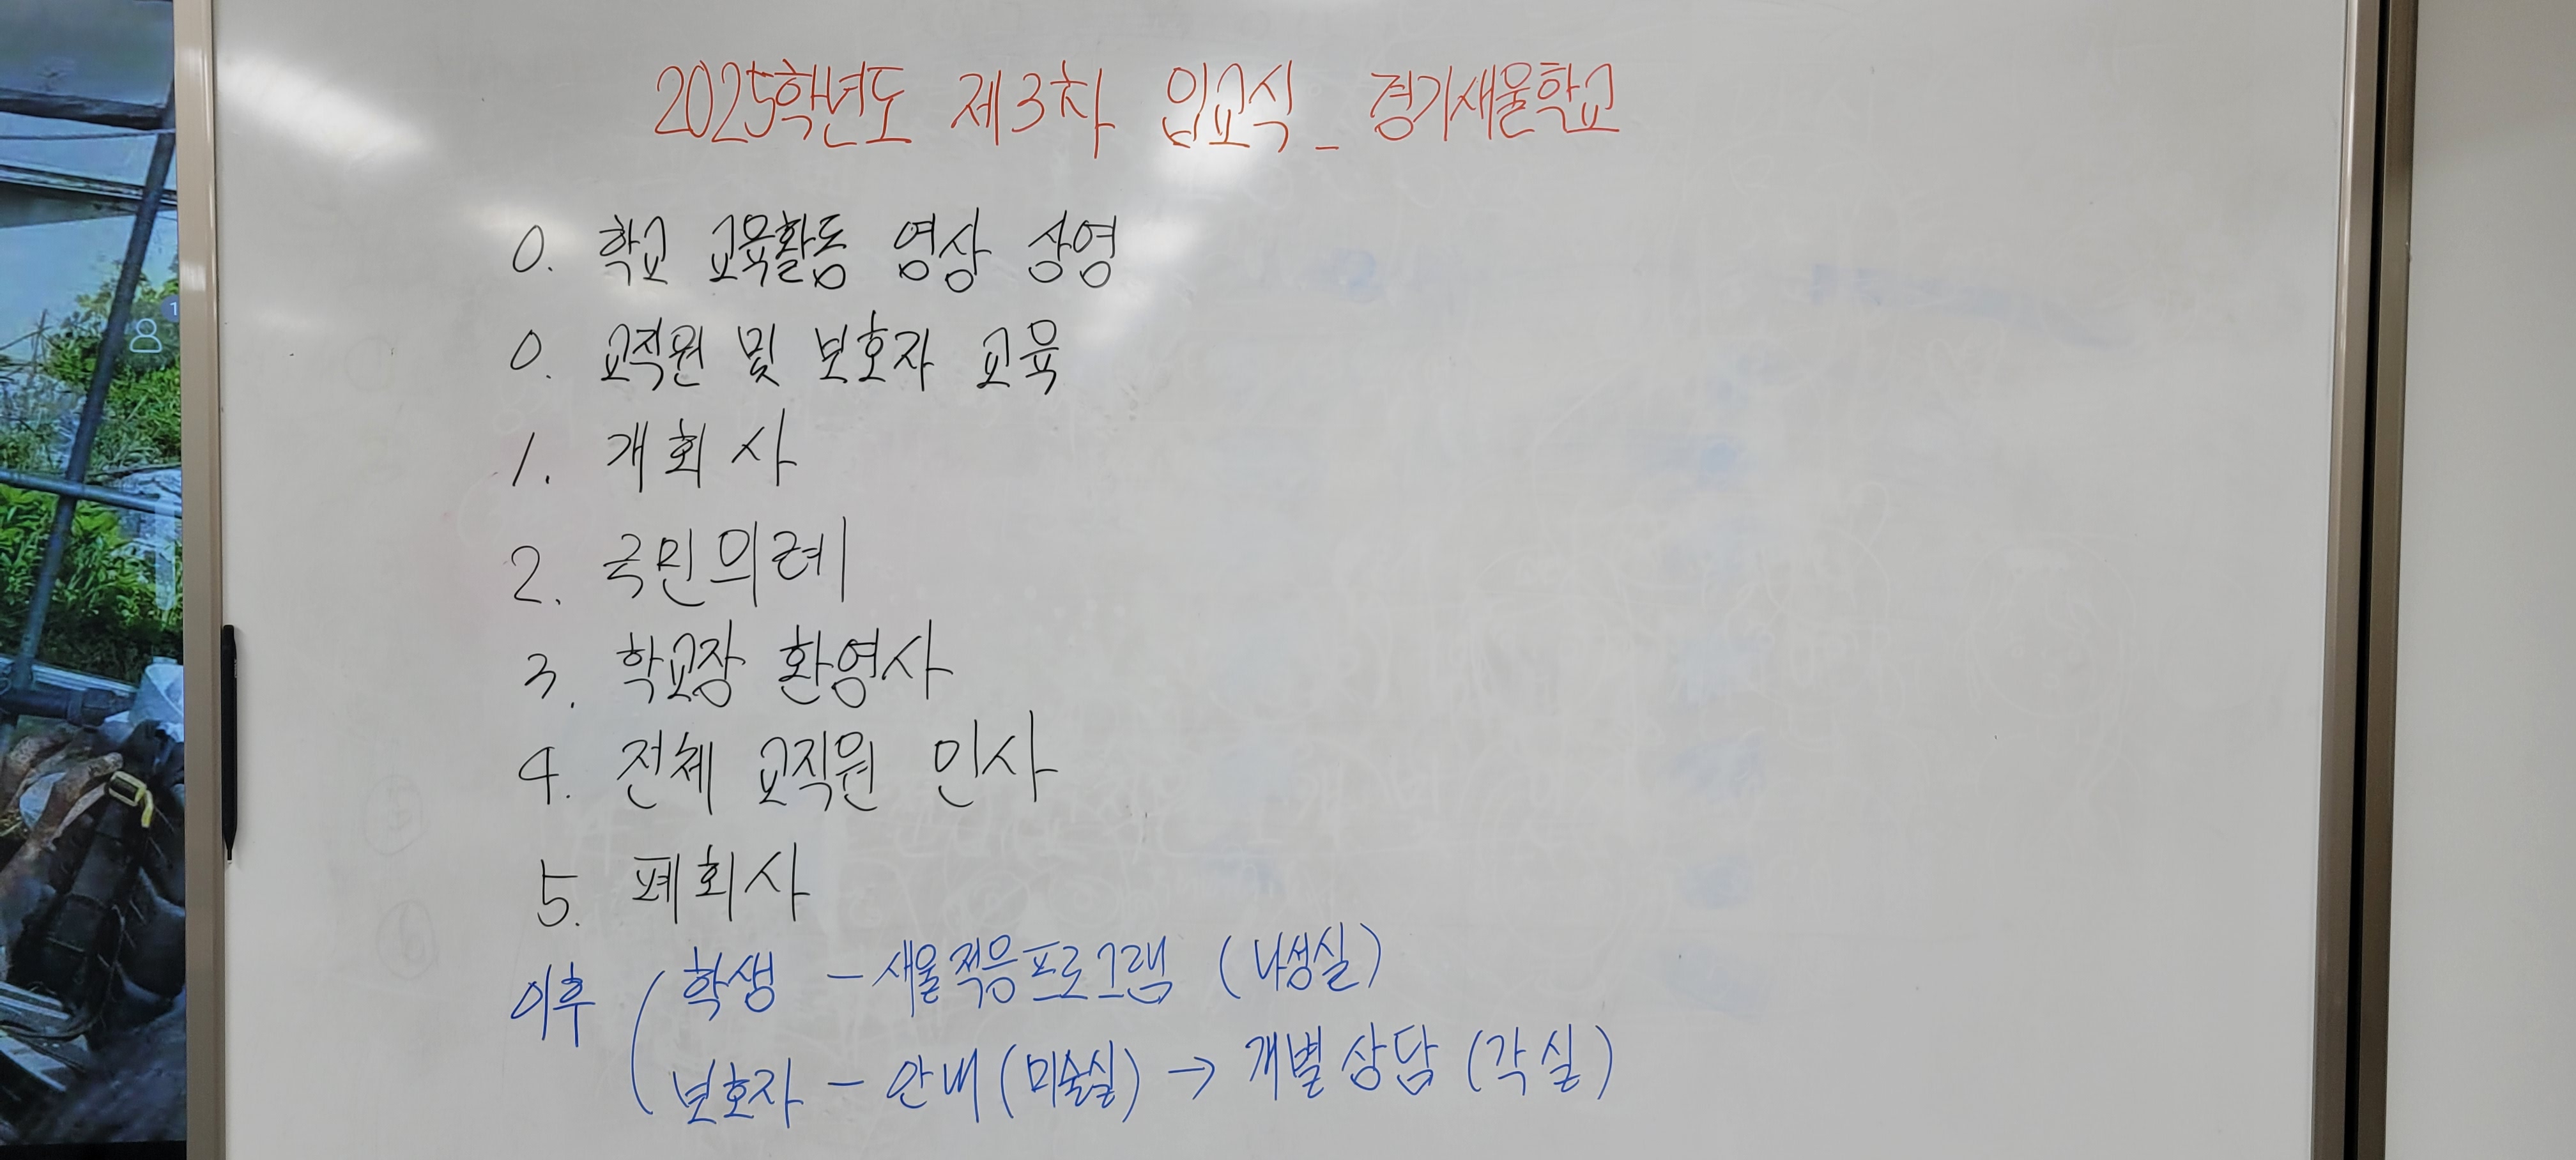 2025학년도 제3차 입교식_경기새울학교
0. 학교 교육활동 영상 상영
0. 교직원 및 보호자 교육
1. 개회사
2. 국민의례
3. 학교장 환영사
4. 전체 교직원 인사
5. 폐회사
이후 ( 학생 - 새울적응프로그램 (나성실)
보호자 - 안내 (미술실) → 개별상담 (각 실)
1